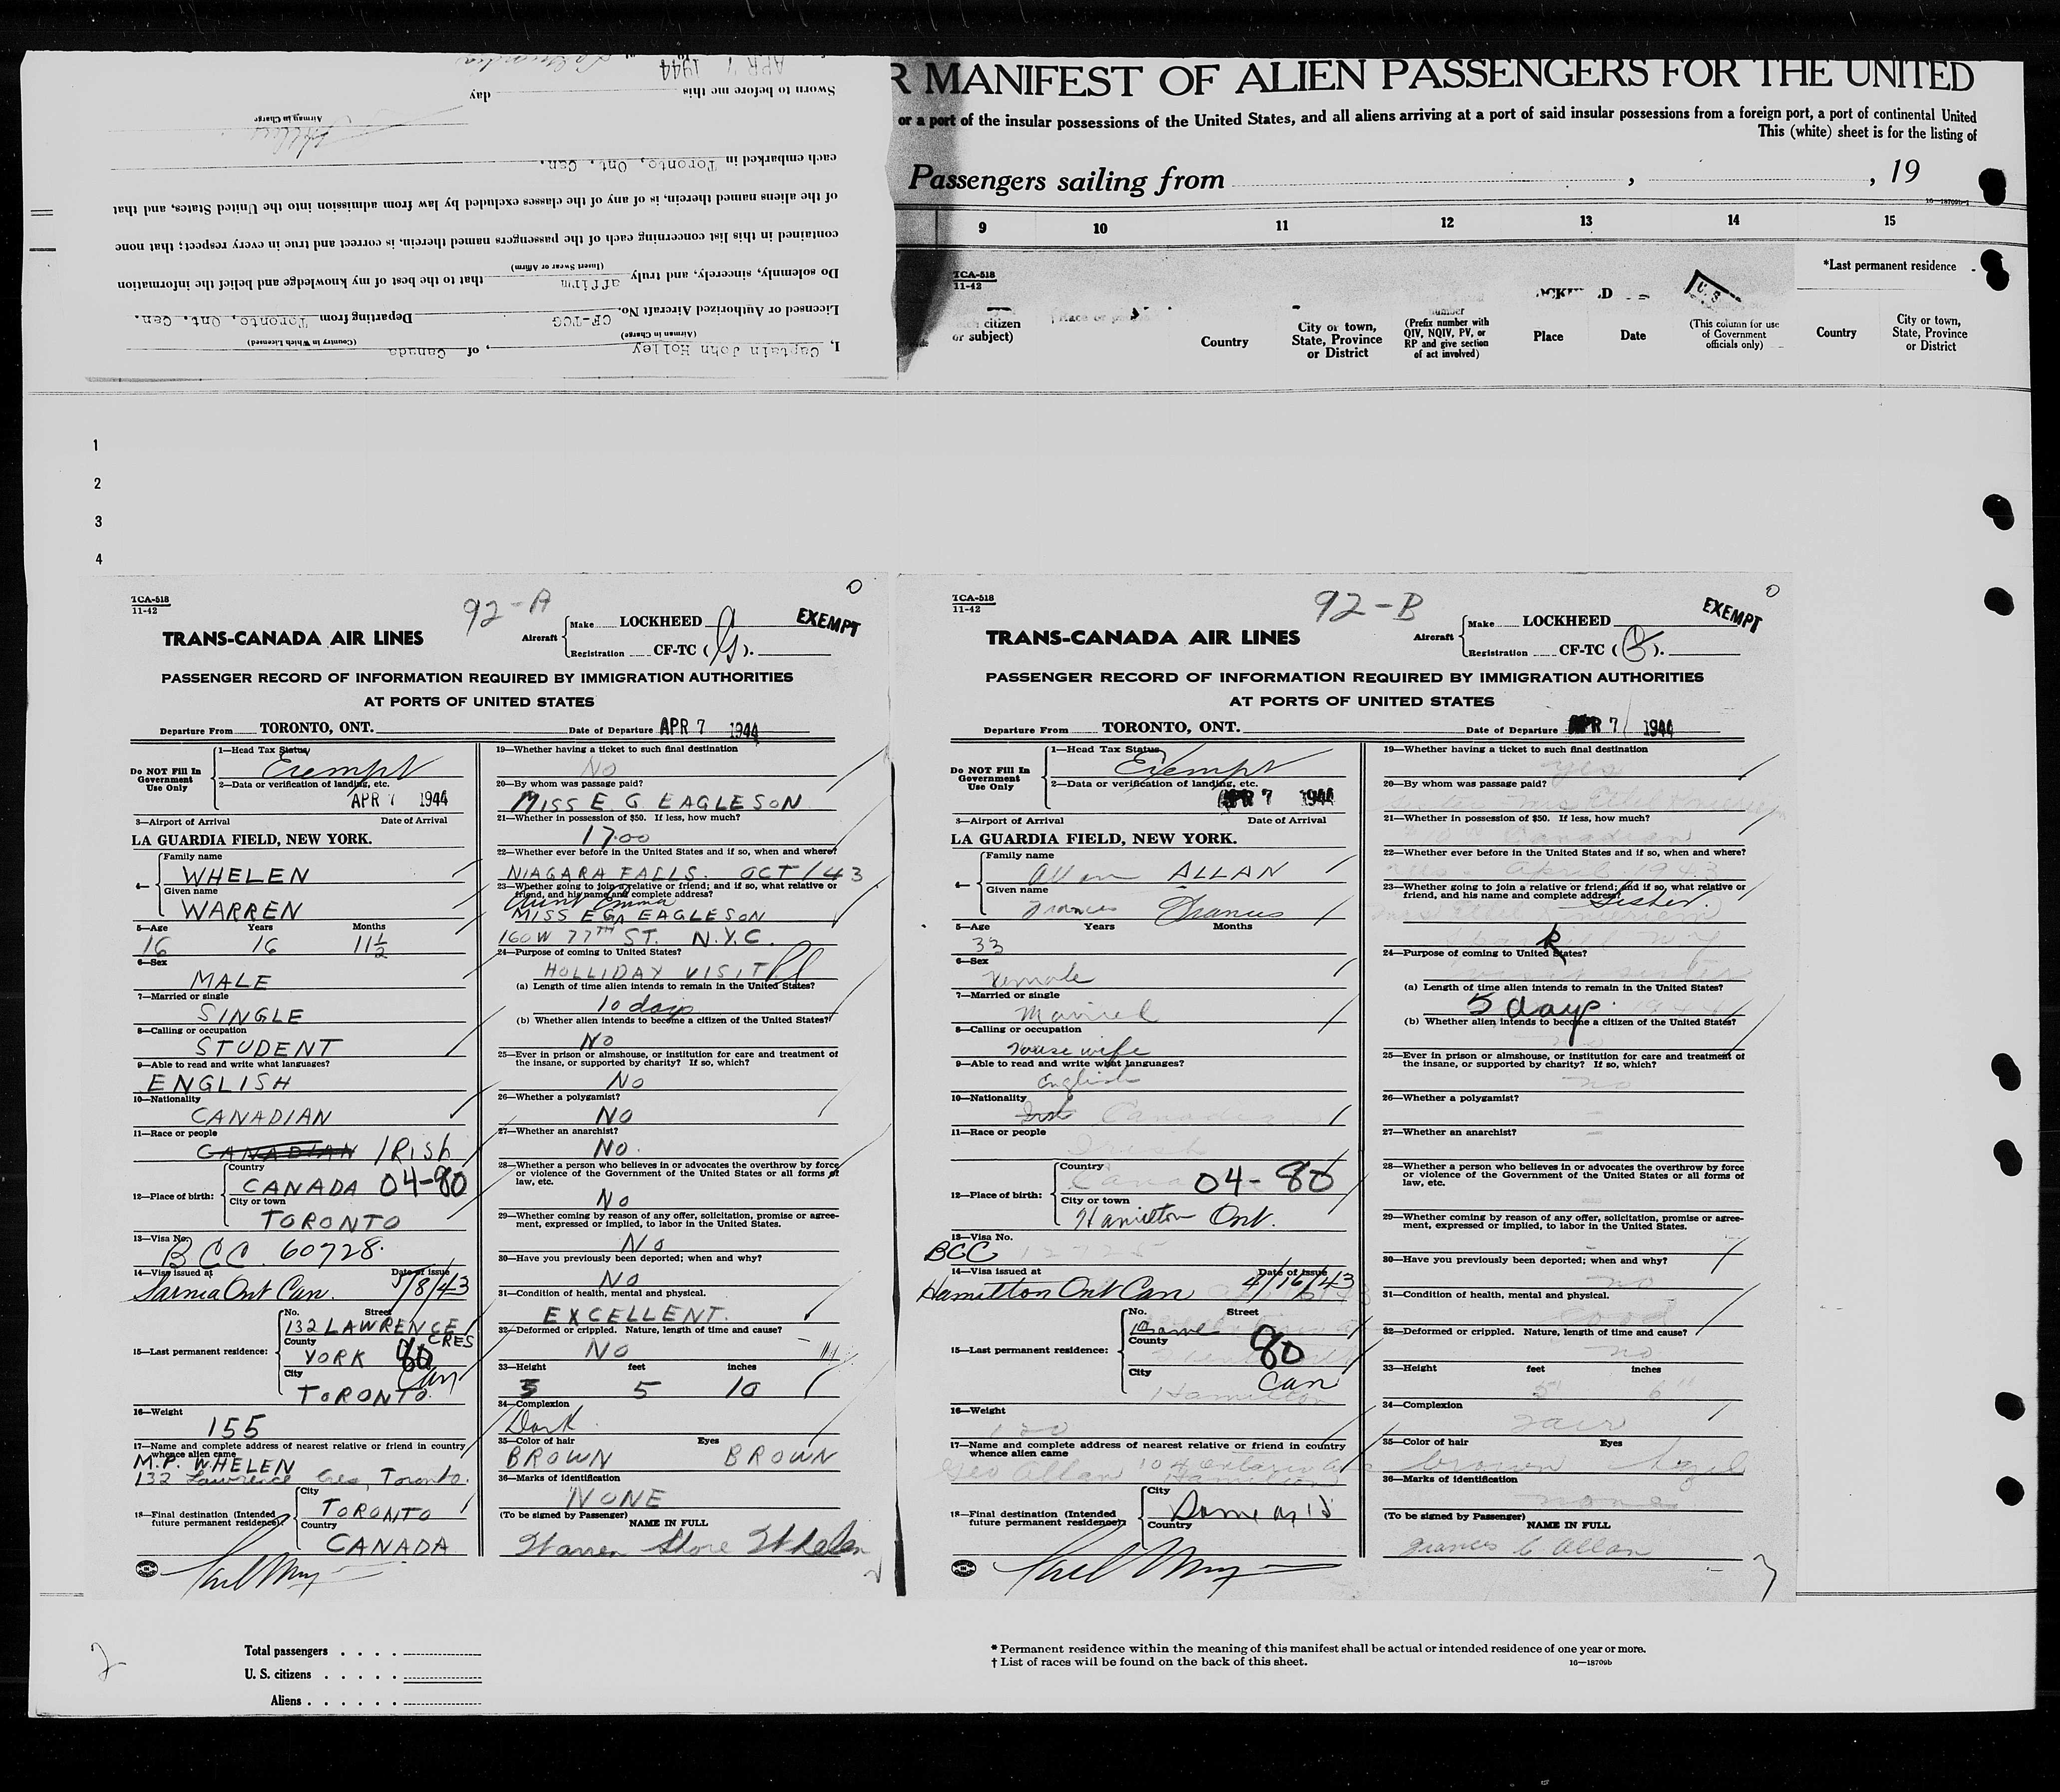 R MANIFEST OF ALIEN PASSENGERS FOR THE UNITED
or a port of the insular possessions of the United States, and all aliens arriving at a port of said insular possessions from a foreign port, a port of continental United
This (white) sheet is for the listing of
Passengers sailing from , , 19
16—18709b-1
9 10 11 12 13 14 15
TCA-518
11-42
*Last permanent residence
citizen
or subject)
Country
City or town,
State, Province
or District
number
(Prefix number with
QIV, NQIV, PV, or
RP and give section
of act involved)
Place
Date
(This column for use
of Government
officials only)
Country
City or town,
State, Province
or District
I, Captain John Holley, of Canada
(Airman in Charge) (Country in Which Licensed)
Licensed or Authorized Aircraft No. CF-TCG Departing from Toronto, Ont. Can.
Do solemnly, sincerely, and truly affirm that to the best of my knowledge and belief the information
(Insert Swear or Affirm)
contained in this list concerning each of the passengers named therein, is correct and true in every respect; that none
of the aliens named therein, is of any of the classes excluded by law from admission into the United States, and that
each embarked in Toronto, Ont. Can.
Airman in Charge
Sworn to before me this day
APR 7 1944
1
2
3
4
TCA-518
11-42
92-A
EXEMPT
TRANS-CANADA AIR LINES
Aircraft
Make LOCKHEED
Registration CF-TC (G).
PASSENGER RECORD OF INFORMATION REQUIRED BY IMMIGRATION AUTHORITIES
AT PORTS OF UNITED STATES
Departure From TORONTO, ONT. Date of Departure APR 7 1944
Do NOT Fill In
Government
Use Only
1—Head Tax Status
Exempt
2—Data or verification of landing, etc.
APR 7 1944
3—Airport of Arrival Date of Arrival
LA GUARDIA FIELD, NEW YORK.
4—
Family name
WHELEN
Given name
WARREN
5—Age Years Months
16 16 11½
6—Sex
MALE
7—Married or single
SINGLE
8—Calling or occupation
STUDENT
9—Able to read and write what languages?
ENGLISH
10—Nationality
CANADIAN
11—Race or people
CANADIAN IRish
12—Place of birth:
Country
CANADA 04-80
City or town
TORONTO
13—Visa No.
BCC 60728.
14—Visa issued at Date of issue
Sarnia Ont Can. 5/8/43
15—Last permanent residence:
No. Street
132 LAWRENCE CRES
County
YORK 80
City
TORONTO. Can
16—Weight
155
17—Name and complete address of nearest relative or friend in country
whence alien came
M.P. WHELEN
132 Lawrence Cres, Toronto.
18—Final destination (Intended
future permanent residence):
City
TORONTO
Country
CANADA
19—Whether having a ticket to such final destination
No
20—By whom was passage paid?
MISS E G. EAGLESON
21—Whether in possession of $50. If less, how much?
17.00
22—Whether ever before in the United States and if so, when and where?
NIAGARA FALLS. OCT/43
23—Whether going to join a relative or friend; and if so, what relative or
friend, and his name and complete address?
Aunt Emma
MISS EG EAGLESON
160 W 77TH ST. N.Y.C.
24—Purpose of coming to United States?
HOLLIDAY VISIT
(a) Length of time alien intends to remain in the United States?
10 days
(b) Whether alien intends to become a citizen of the United States?
No
25—Ever in prison or almshouse, or institution for care and treatment of
the insane, or supported by charity? If so, which?
No
26—Whether a polygamist?
No
27—Whether an anarchist?
No.
28—Whether a person who believes in or advocates the overthrow by force
or violence of the Government of the United States or all forms of
law, etc.
No
29—Whether coming by reason of any offer, solicitation, promise or agree-
ment, expressed or implied, to labor in the United States.
No
30—Have you previously been deported; when and why?
No
31—Condition of health, mental and physical.
EXCELLENT.
32—Deformed or crippled. Nature, length of time and cause?
No
33—Height feet inches
5 5 10
34—Complexion
Dark
35—Color of hair Eyes
BROWN BROWN
36—Marks of identification
NONE
(To be signed by Passenger)
NAME IN FULL
Warren Whelen
TCA-518
11-42
92-B
EXEMPT
TRANS-CANADA AIR LINES
Aircraft
Make LOCKHEED
Registration CF-TC (G).
PASSENGER RECORD OF INFORMATION REQUIRED BY IMMIGRATION AUTHORITIES
AT PORTS OF UNITED STATES
Departure From TORONTO, ONT. Date of Departure APR 7 1944
Do NOT Fill In
Government
Use Only
1—Head Tax Status
Exempt
2—Data or verification of landing, etc.
APR 7 1944
3—Airport of Arrival Date of Arrival
LA GUARDIA FIELD, NEW YORK.
4—
Family name
Allan ALLAN
Given name
Frances Frances
5—Age Years Months
33
6—Sex
Female
7—Married or single
Married
8—Calling or occupation
Housewife
9—Able to read and write what languages?
English
10—Nationality
Canadian
11—Race or people
Irish
12—Place of birth:
Country
Canada 04-80
City or town
Hamilton Ont.
13—Visa No.
BCC 12725
14—Visa issued at Date of issue
Hamilton Ont Can 4/16/43
15—Last permanent residence:
No. Street
Same
County
80
City
Hamilton Can
16—Weight
120
17—Name and complete address of nearest relative or friend in country
whence alien came
Geo Allan 104 Ontario Ave
Hamilton
18—Final destination (Intended
future permanent residence):
City
Same as 15
Country
19—Whether having a ticket to such final destination
yes
20—By whom was passage paid?
Sister Mrs Ethel
21—Whether in possession of $50. If less, how much?
Canadian
22—Whether ever before in the United States and if so, when and where?
April 1943
23—Whether going to join a relative or friend; and if so, what relative or
friend, and his name and complete address?
Sister.
Mrs Ethel
24—Purpose of coming to United States?
visit sister
(a) Length of time alien intends to remain in the United States?
5 days.
(b) Whether alien intends to become a citizen of the United States?
no
25—Ever in prison or almshouse, or institution for care and treatment of
the insane, or supported by charity? If so, which?
no
26—Whether a polygamist?
-
27—Whether an anarchist?
-
28—Whether a person who believes in or advocates the overthrow by force
or violence of the Government of the United States or all forms of
law, etc.
29—Whether coming by reason of any offer, solicitation, promise or agree-
ment, expressed or implied, to labor in the United States.
30—Have you previously been deported; when and why?
no
31—Condition of health, mental and physical.
Good
32—Deformed or crippled. Nature, length of time and cause?
no
33—Height feet inches
5' 6"
34—Complexion
Fair
35—Color of hair Eyes
brown hazel
36—Marks of identification
none
(To be signed by Passenger)
NAME IN FULL
Frances C Allan
2
Total passengers . . . .
U. S. citizens . . . . .
Aliens . . . . . .
* Permanent residence within the meaning of this manifest shall be actual or intended residence of one year or more.
† List of races will be found on the back of this sheet.
16—18709b